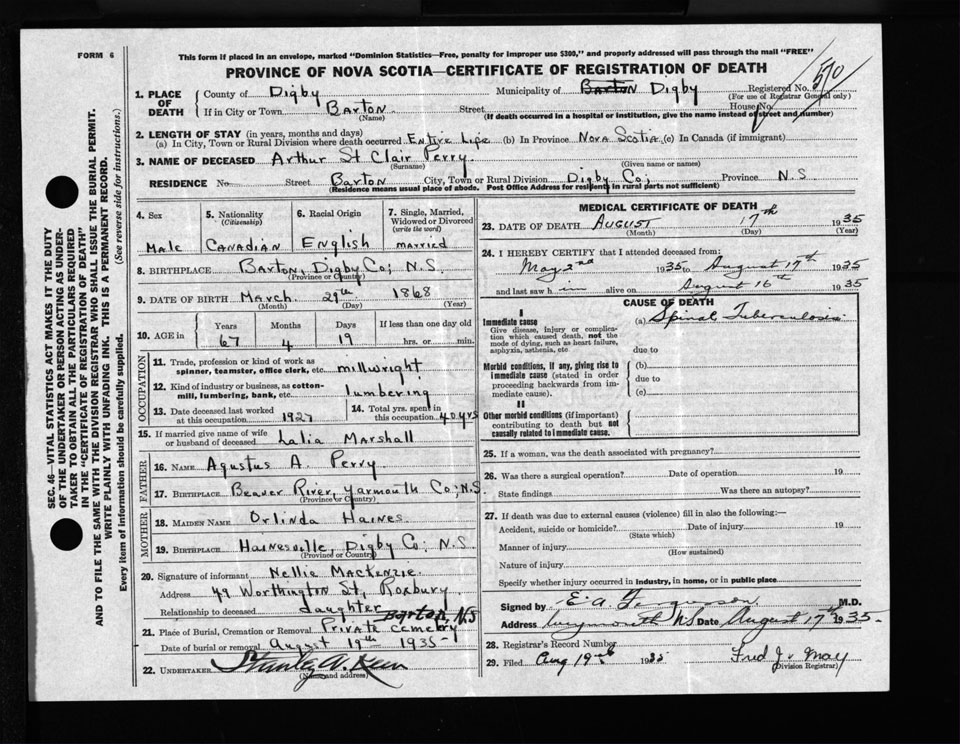 FORM 6
This form if placed in an envelope, marked "Dominion Statistics—Free, penalty for improper use $300," and properly addressed will pass through the mail "FREE"
PROVINCE OF NOVA SCOTIA—CERTIFICATE OF REGISTRATION OF DEATH
570
1. PLACE OF DEATH
County of Digby Municipality of Barton Digby Registered No.
(For use of Registrar General only)
If in City or Town Barton Street House No.
(Name) (If death occurred in a hospital or institution, give the name instead of street and number)
2. LENGTH OF STAY (in years, months and days)
(a) In City, Town or Rural Division where death occurred Entire Life (b) In Province Nova Scotia (c) In Canada (if immigrant)
3. NAME OF DECEASED Arthur St Clair Perry
(Surname) (Given name or names)
RESIDENCE No. Street Barton City, Town or Rural Division Digby Co; Province N.S.
(Residence means usual place of abode. Post Office Address for residents in rural parts not sufficient)
4. Sex
Male
5. Nationality
(Citizenship)
Canadian
6. Racial Origin
English
7. Single, Married, Widowed or Divorced
(write the word)
married
8. BIRTHPLACE Barton, Digby Co; N.S.
(Province or Country)
9. DATE OF BIRTH March 29th 1868
(Month) (Day) (Year)
10. AGE in
Years Months Days If less than one day old
67 4 19 hrs. or min.
OCCUPATION
11. Trade, profession or kind of work as spinner, teamster, office clerk, etc. millwright
12. Kind of industry or business, as cotton-mill, lumbering, bank, etc. lumbering
13. Date deceased last worked at this occupation 1927
14. Total yrs. spent in this occupation 40 yrs
15. If married give name of wife or husband of deceased Lalia Marshall
FATHER
16. NAME Agustus A. Perry
17. BIRTHPLACE Beaver River, Yarmouth Co; N.S.
(Province or Country)
MOTHER
18. MAIDEN NAME Orlinda Haines
19. BIRTHPLACE Hainesville, Digby Co; N.S.
(Province or Country)
20. Signature of informant Nellie MacKenzie
Address 49 Worthington St, Roxbury
Relationship to deceased daughter
Barton, N.S
21. Place of Burial, Cremation or Removal Private cemetery
Date of burial or removal August 19th 1935
22. UNDERTAKER Stanley V.
(Name and address)
MEDICAL CERTIFICATE OF DEATH
23. DATE OF DEATH August 17th 1935
(Month) (Day) (Year)
24. I HEREBY CERTIFY that I attended deceased from:
May 2nd 1935 to August 17th 1935
and last saw h im alive on August 16th 1935
CAUSE OF DEATH
I
Immediate cause
Give disease, injury or complication which caused death, not the mode of dying, such as heart failure, asphyxia, asthenia, etc
(a) Spinal Tuberculosis
due to
Morbid conditions, if any, giving rise to immediate cause (stated in order proceeding backwards from immediate cause).
(b)
due to
(c)
II
Other morbid conditions (if important) contributing to death but not causally related to immediate cause.
25. If a woman, was the death associated with pregnancy?
26. Was there a surgical operation? Date of operation 19
State findings Was there an autopsy?
27. If death was due to external causes (violence) fill in also the following:—
Accident, suicide or homicide? Date of injury 19
(State which)
Manner of injury
(How sustained)
Nature of injury
Specify whether injury occurred in industry, in home, or in public place
Signed by E. A. Fergusson M.D.
Address Weymouth NS Date August 17th 1935
28. Registrar's Record Number
29. Filed Aug 19th 1935 Fred J. May
(Division Registrar)
SEC. 46—VITAL STATISTICS ACT MAKES IT THE DUTY
OF THE UNDERTAKER OR PERSON ACTING AS UNDER-
TAKER TO OBTAIN ALL THE PARTICULARS REQUIRED
IN THE "CERTIFICATE OF REGISTRATION OF DEATH"
AND TO FILE THE SAME WITH THE DIVISION REGISTRAR WHO SHALL ISSUE THE BURIAL PERMIT.
WRITE PLAINLY WITH UNFADING INK. THIS IS A PERMANENT RECORD.
Every item of information should be carefully supplied. (See reverse side for instructions.)